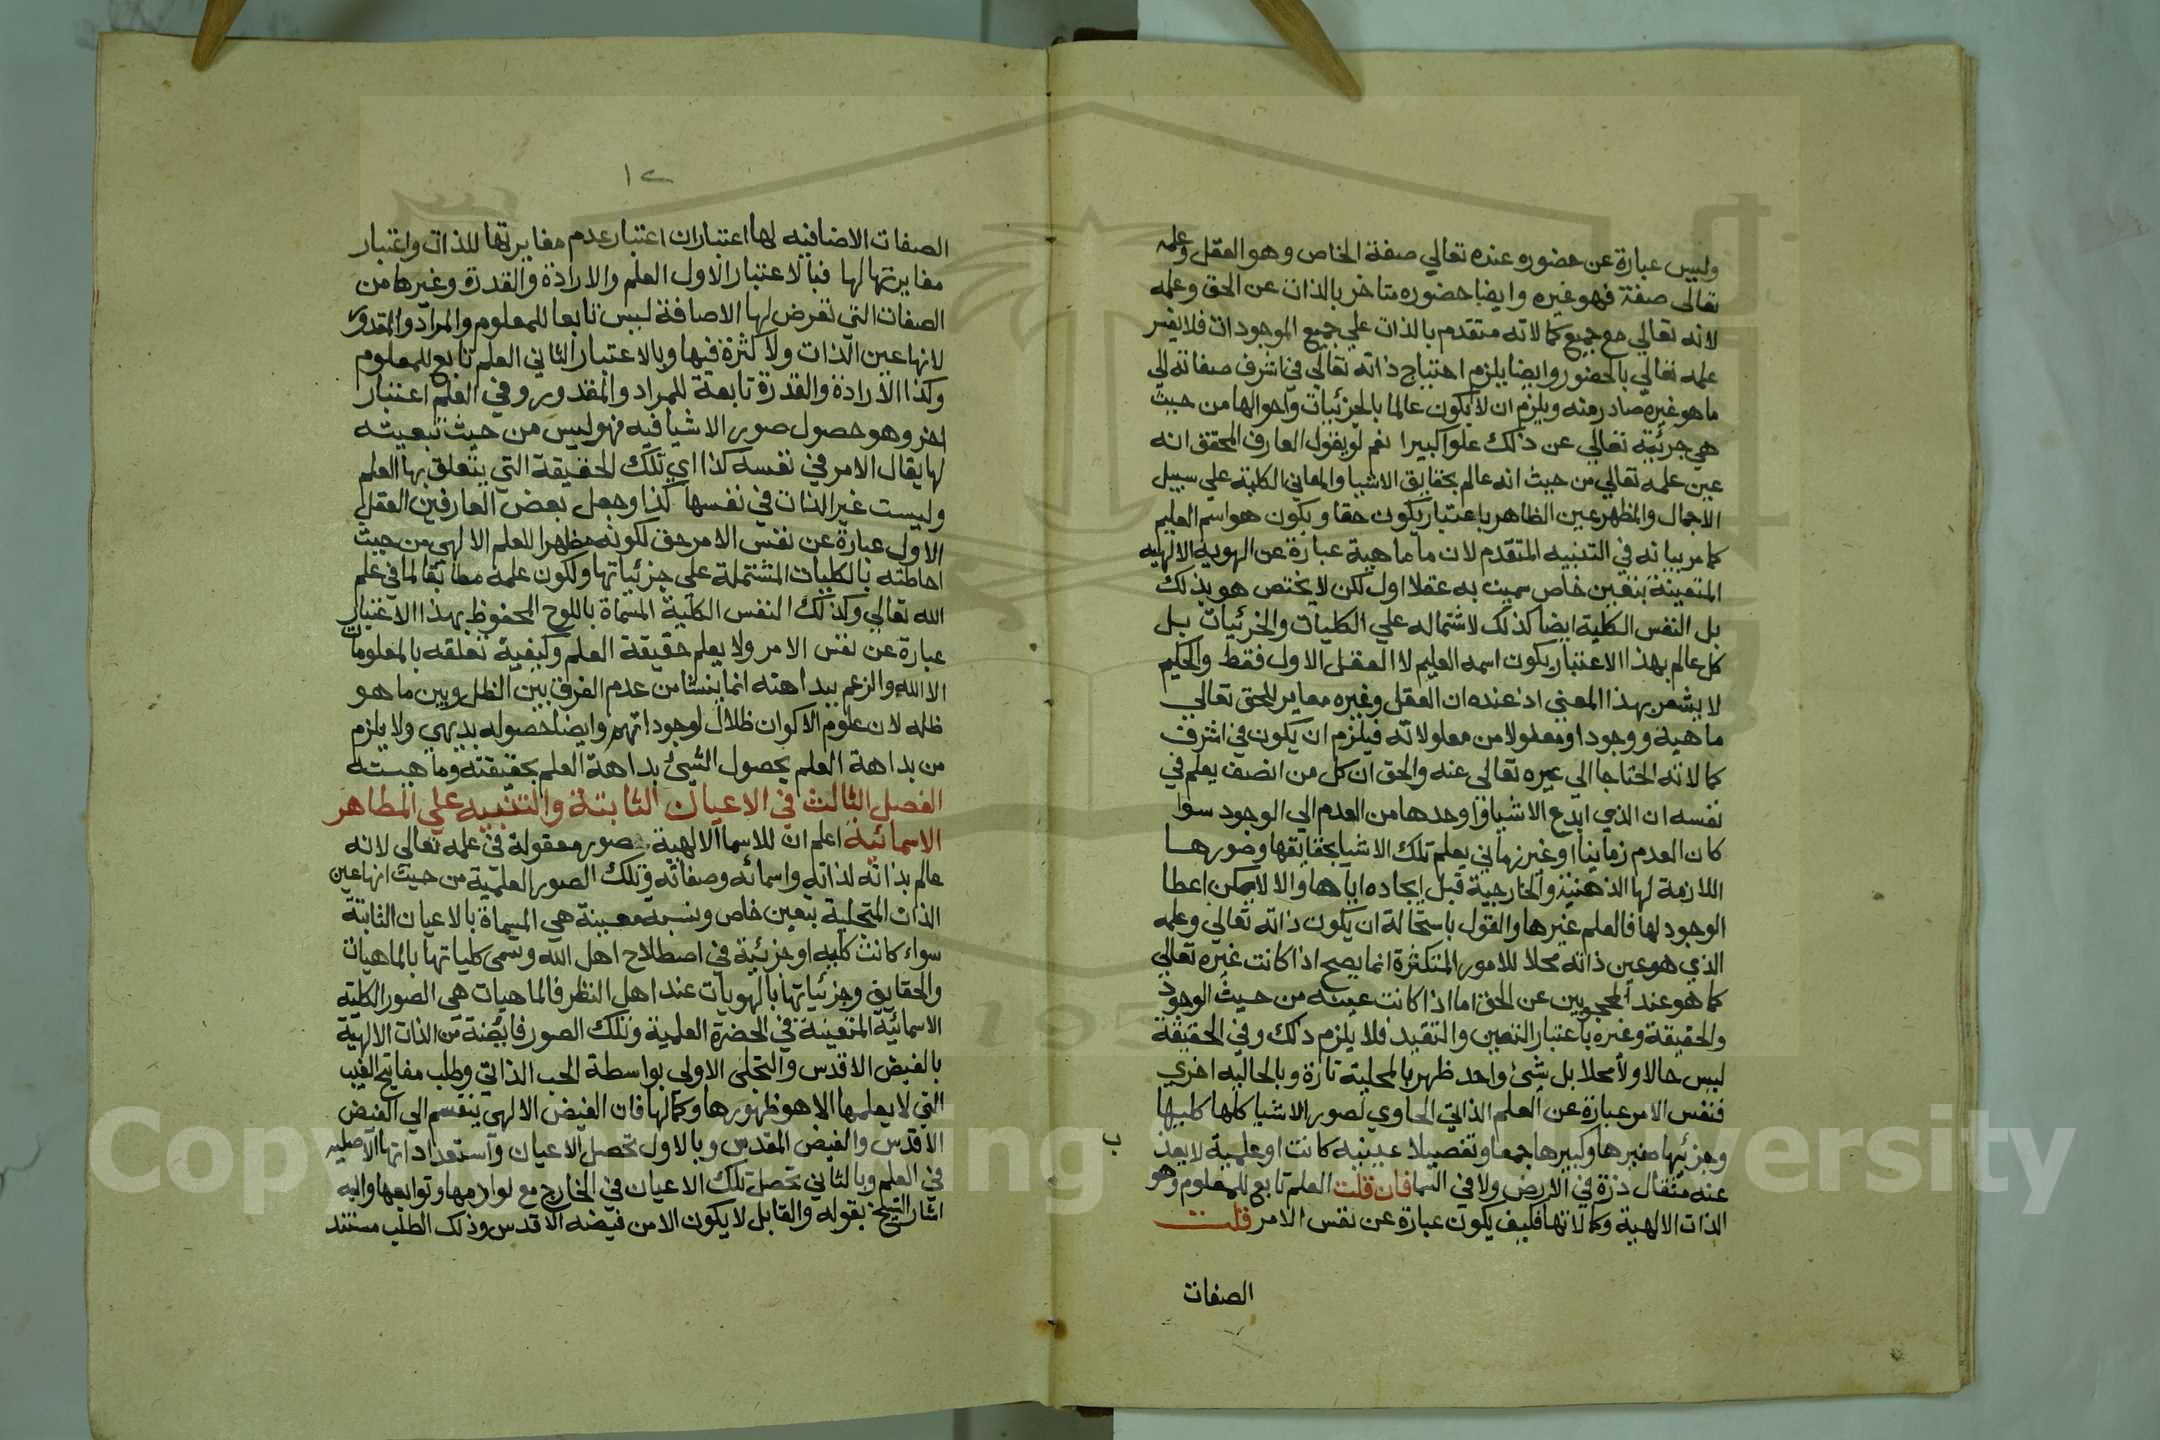 وليس عبارة عن حضوره عنده تعالي صفة الخاص وهو العقل وعلمه
تعالى صفة فهو غيره وايضا حضوره متاخر بالذات عن الحق وعلمه
لانه تعالي مع جميع كمالاته متقدم بالذات علي جميع الموجودات فلا يفسر
علمه تعالي بالحضور وايضا يلزم احتياج ذاته تعالي في اشرف صفاته الي
ما هو غيره صادر منه ويلزم ان لا يكون عالما بالجزئيات واحوالها من حيث
هي جزئية تعالي عن ذلك علوا كبيرا نعم لو يقول العارف المحقق انه
عين علمه تعالي من حيث انه عالم بحقايق الاشيا والمعاني الكلية علي سبيل
الاجمال والمظهر عين الظاهر باعتبار يكون حقا ويكون هو اسم العليم
كما مر بيانه في التنبيه المتقدم لان ماماهية عبارة عن الهوية الالهيه
المتعينة بتعين خاص سميت به عقلا اول لكن لا يختص هو بذلك
بل النفس الكلية ايضا كذلك لاشتماله علي الكليات والجزئيات بل
كل عالم بهذا الاعتبار يكون اسمه العليم لا العقل الاول فقط والحكيم
لا يشعر بهذا المعني اذ عنده ان العقل وغيره مغاير للحق تعالي
ماهية ووجودا ومعلولا من معلولاته فيلزم ان يكون في اشرف
كمالاته احتاجا الي غيره تعالي عنه والحق ان كل من انصف يعلم في
نفسه ان الذي ابدع الاشيا واوجدها من العدم الي الوجود سوا
كان العدم زمانيا او غير زماني يعلم تلك الاشيا بحقايقها وصورها
اللازمة لها الذهنية والخارجية قبل ايجاده اياها والا لا يمكن اعطا
الوجود لها فالعلم غيرها والقول باستحالة ان يكون ذاته تعالي وعلمه
الذي هو عين ذاته محلا للامور المتكثرة انما يصح اذا كانت غيره تعالي
كما هو عند المحجوبين عن الحق اما اذا كانت عينه من حيث الوجود
والحقيقة وغيره باعتبار التعين والتقيد فلا يلزم ذلك وفي الحقيقة
ليس حالا ولا محلا بل شئ واحد ظهر بالمحلية تارة وبالحاليه اخري
فنفس الامر عبارة عن العلم الذاتي الحاوي لصور الاشيا كلها كليها
وجزئيها صغيرها وكبيرها جمعا وتفصيلا عينيه كانت او علمية لا يعزب
عنه مثقال ذرة في الارض ولا في السما فان قلت العلم تابع للمعلوم وهو
الذات الالهية وكمالاتها فكيف يكون عبارة عن نفس الامر قلت
الصفات
١٢
الصفات الاضافيه لها اعتباران اعتبار عدم مغايرتها للذات واعتبار
مغايرتها لها فبالاعتبار الاول العلم والارادة والقدرة وغيرها من
الصفات التي تعرض لها الاضافة ليس تابعا للمعلوم والمراد والمقدور
لانها عين الذات ولا كثرة فيها وبالاعتبار الثاني العلم تابع للمعلوم
وكذا الارادة والقدرة تابعة للمراد والمقدور وفي العلم اعتبار
اخر وهو حصول صور الاشيا فيه فهو ليس من حيث تبعيته
لها يقال الامر في نفسه كذا اي تلك الحقيقة التي يتعلق بها العلم
وليست غير الذات في نفسها كذا وجعل بعض العارفين العقل
الاول عبارة عن نفس الامر حق لكونه مظهرا للعلم الالهي من حيث
احاطته بالكليات المشتملة على جزئياتها ولكون علمه مطابقا لما في علم
الله تعالي وكذلك النفس الكلية المسماة باللوح المحفوظ بهذا الاعتبار
عبارة عن نفس الامر ولا يعلم حقيقة العلم وكيفية تعلقه بالمعلومات
الا الله والزعم ببداهته انما ينشا من عدم الفرق بين الظل وبين ما هو
ظله لان علوم الاكوان ظلال لوجوداتهم وايضا حصوله بديهي ولا يلزم
من بداهة العلم بحصول الشئ بداهة العلم بحقيقته وماهيته
الفصل الثالث في الاعيان الثابتة والتنبيه علي المظاهر
الاسمائية اعلم ان للاسما الالهية صور معقولة في علمه تعالي لانه
عالم بذاته لذاته واسمائه وصفاته وتلك الصور العلمية من حيث انها عين
الذات المتجلية بتعين خاص ونسبه معينة هي المسماة بالاعيان الثابتة
سواء كانت كليه او جزئية في اصطلاح اهل الله وسمى كلياتها بالماهيات
والحقايق وجزئياتها بالهويات عند اهل النظر فالماهيات هي الصور الكلية
الاسمائية المتعينة في الحضرة العلمية وتلك الصور فايضة من الذات الالهية
بالفيض الاقدس والتجلي الاولي بواسطة الحب الذاتي وطلب مفاتيح الغيب
التي لا يعلمها الا هو ظهورها وكمالها فان الفيض الالهي ينقسم الي الفيض
الاقدس والفيض المقدس وبالاول تحصل الاعيان واستعداداتها الاصليه
في العلم وبالثاني تحصل تلك الاعيان في الخارج مع لوازمها وتوابعها واليه
اشار الشيخ بقوله والقابل لا يكون الا من فيضه الاقدس وذلك الطلب مستند
Copyright © King Saud University